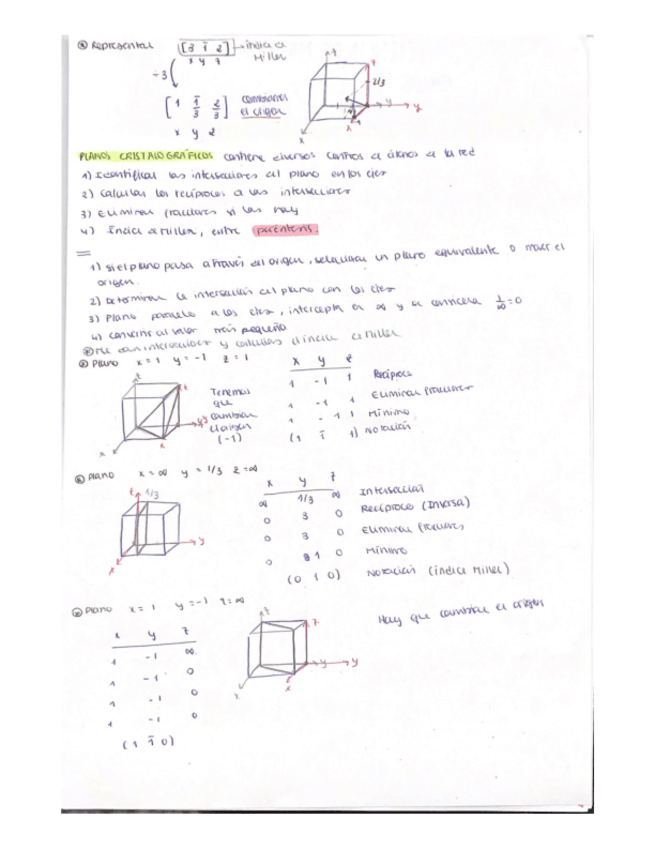 ⊛ Representar [3 1̄ 2] → índice
Miller
x y z
÷3
[1 1̄/3 2/3] cambiamos
el origen
x y z
z
2/3
y y
x x
PLANOS CRISTALOGRÁFICOS contiene diversos centros de átomos de la red
1) Identificar las intersecciones del plano en los ejes
2) Calcular los recíprocos de las intersecciones
3) Eliminar fracciones si las hay
4) Índice de Miller, entre paréntesis.
1) si el plano pasa a través del origen, seleccionar un plano equivalente o mover el
origen.
2) Determinar la intersección del plano con los ejes
3) Plano paralelo a los ejes, intercepta en ∞ y se considera 1/∞ = 0
4) convertir al valor más pequeño
⊛ Me dan intersecciones y calculas el índice de Miller
⊛ Plano x = 1 y = -1 z = 1
x y z
1 -1 1 Recíproco
1 -1 1 Eliminar fracciones
1 -1 1 Mínimo
(1 1̄ 1) Notación
Tenemos
que
cambiar
el origen
(-1)
z z
y
x x
⊛ Plano x = ∞ y = 1/3 z = ∞
x y z
∞ 1/3 ∞ Intersección
0 3 0 Recíproco (Inversa)
0 3 0 Eliminar fracciones
0 1 0 Mínimo
(0 1 0) Notación (índice Miller)
z 1/3
y
x
⊛ Plano x = 1 y = -1 z = ∞
Hay que cambiar el origen
x y z
1 -1 ∞
1 -1 0
1 -1 0
1 -1 0
(1 1̄ 0)
z z
y y
x x